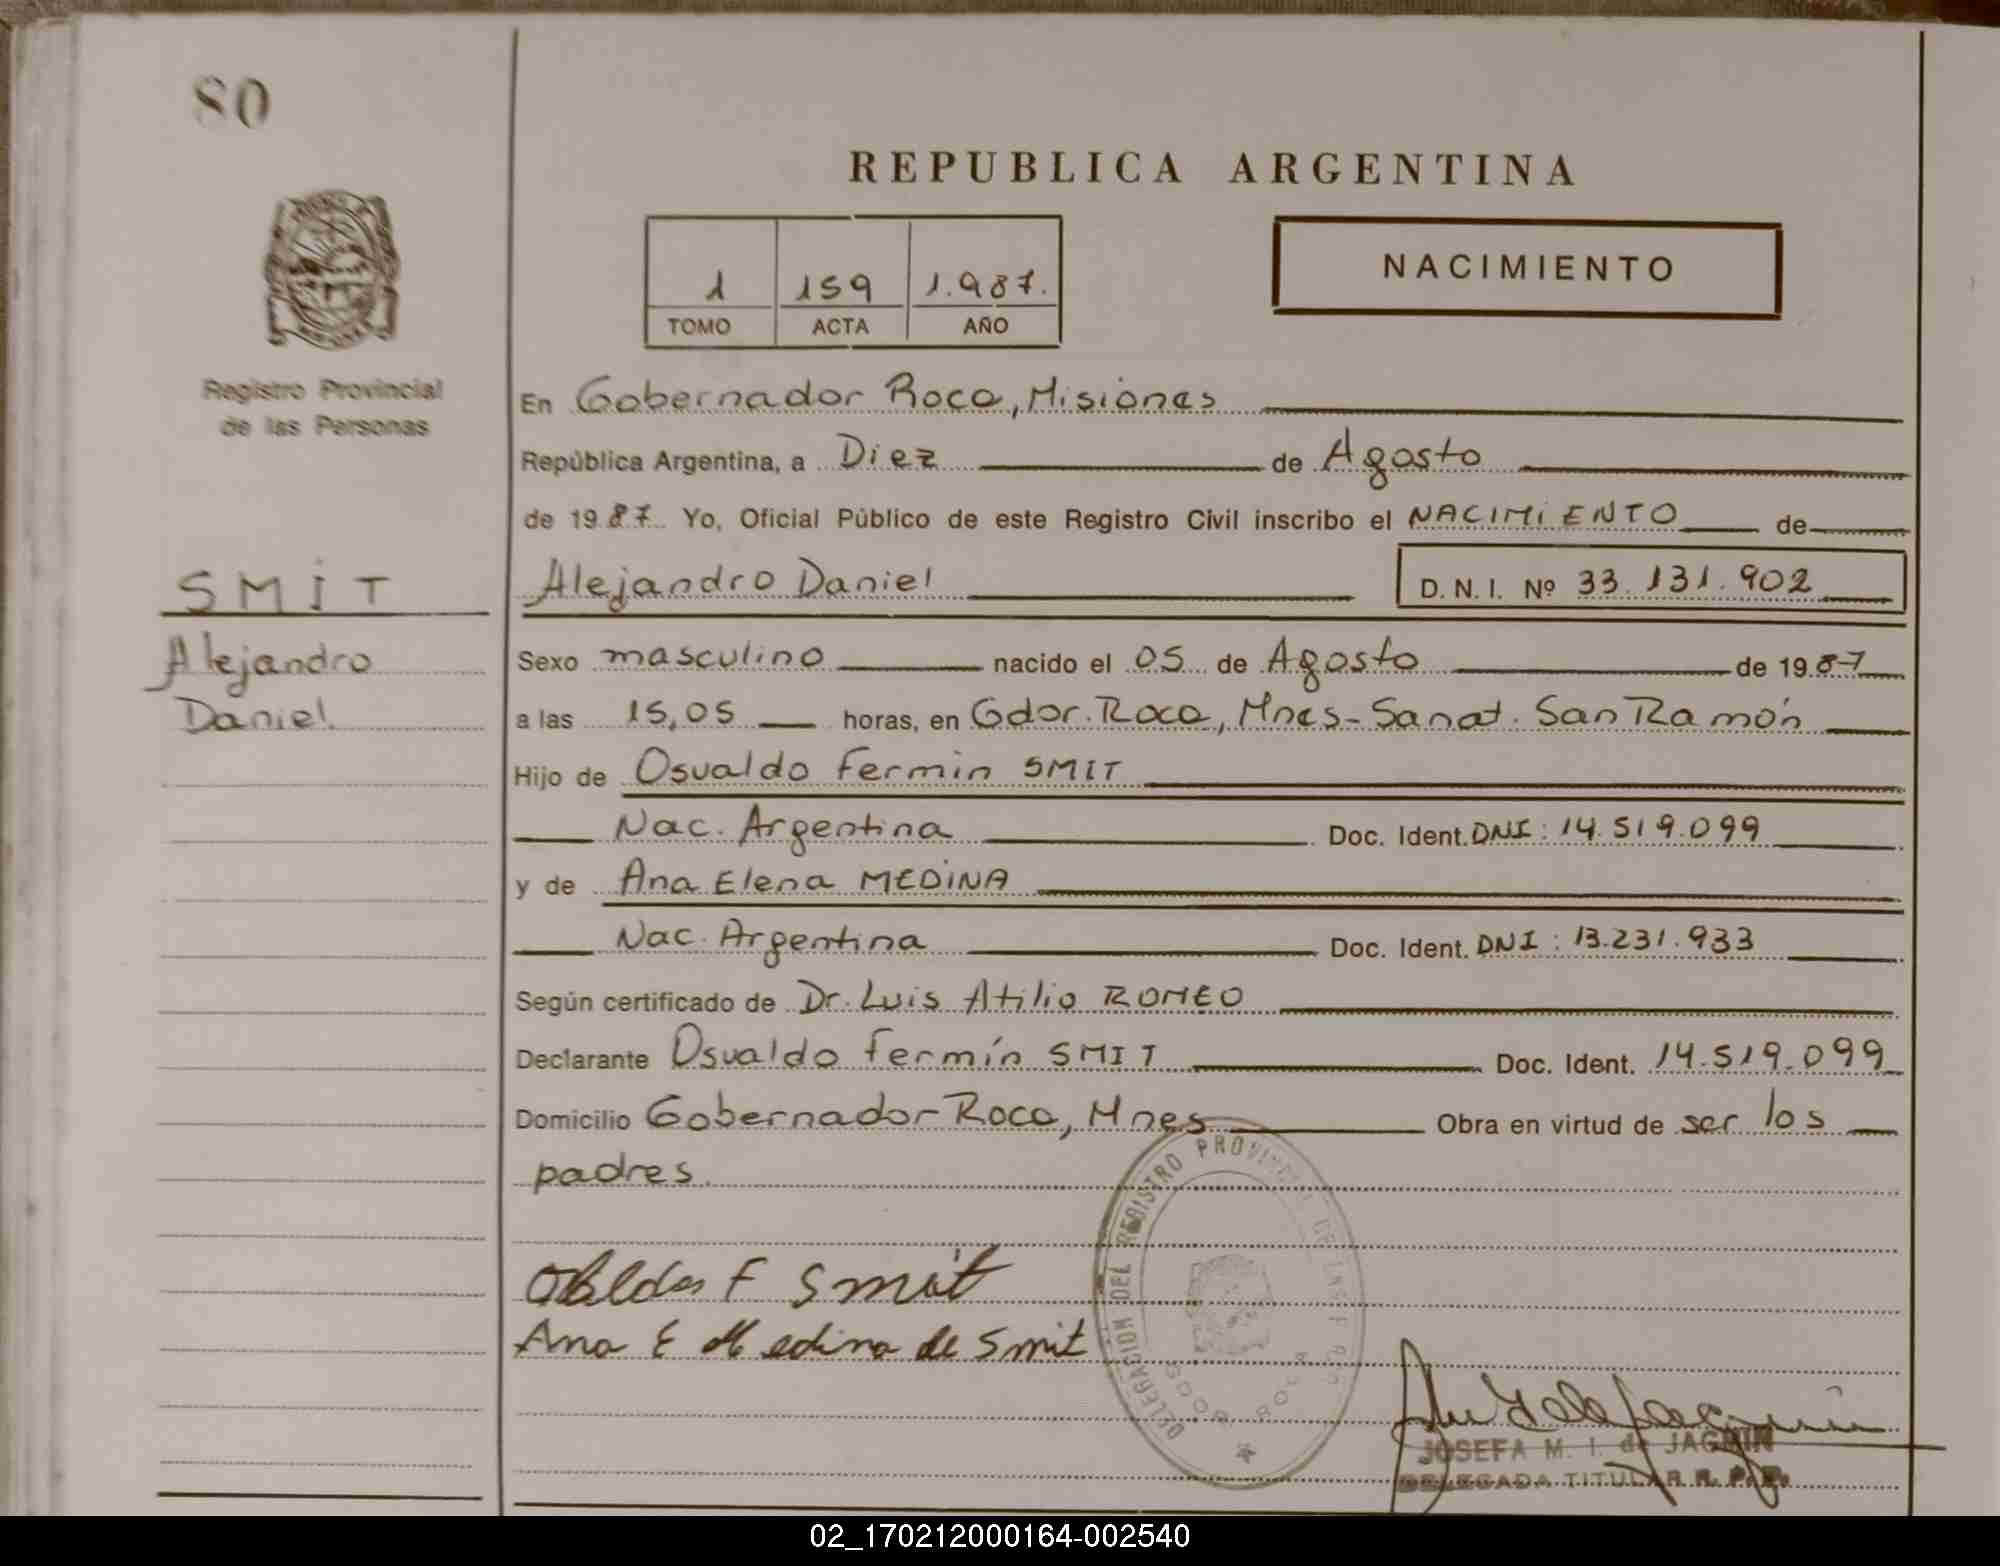 80
REPUBLICA ARGENTINA
NACIMIENTO
1 159 1.987.
TOMO ACTA AÑO
Registro Provincial
de las Personas
En Gobernador Roca, Misiones
República Argentina, a Diez de Agosto
de 1987 Yo, Oficial Público de este Registro Civil inscribo el NACIMIENTO de
SMIT
Alejandro
Daniel
Alejandro Daniel D. N. I. Nº 33.131.902
Sexo masculino nacido el 05 de Agosto de 1987
a las 15,05 horas, en Gdor. Roca, Mnes-Sanat. San Ramón
Hijo de Osvaldo Fermin SMIT
Nac. Argentina Doc. Ident. DNI: 14.519.099
y de Ana Elena MEDINA
Nac. Argentina Doc. Ident. DNI: 13.231.933
Según certificado de Dr. Luis Atilio ROMEO
Declarante Osvaldo Fermín SMIT Doc. Ident. 14.519.099
Domicilio Gobernador Roca, Mnes Obra en virtud de ser los
padres.
F Smit
Ana E Medina de Smit
DELEGACION DEL REGISTRO PROVINCIAL DE LAS PER
GDOR ROCA
JOSEFA M. I. de JAGMIN
DELEGADA TITULAR R. P. P.
02_170212000164-002540